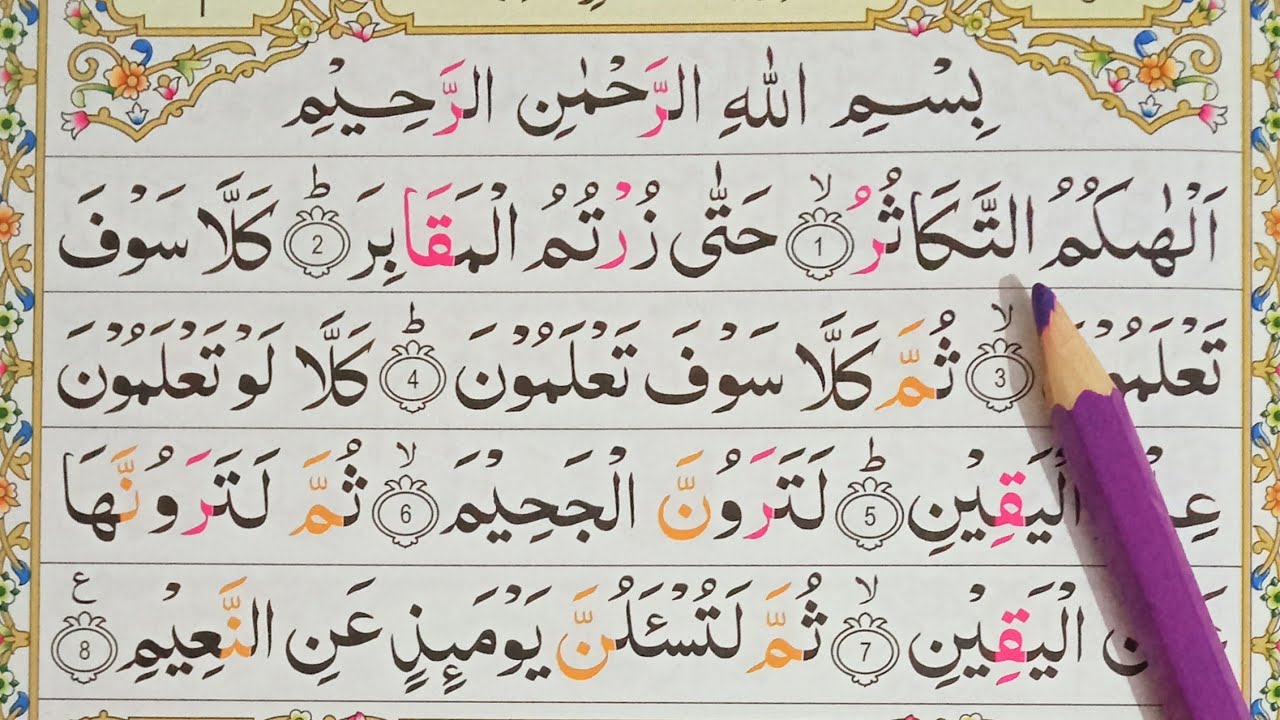 بِسْمِ اللهِ الرَّحْمٰنِ الرَّحِيْمِ
اَلْهٰىكُمُ التَّكَاثُرُ ۙ 1 حَتّٰى زُرْتُمُ الْمَقَابِرَ ؕ 2 كَلَّا سَوْفَ
ثُمَّ كَلَّا سَوْفَ تَعْلَمُوْنَ ؕ 4 كَلَّا لَوْ تَعْلَمُوْنَ ۙ 3
الْيَقِيْنِ ؕ 5 لَتَرَوُنَّ الْجَحِيْمَ ۙ 6 ثُمَّ لَتَرَوُنَّهَا
الْيَقِيْنِ ۙ 7 ثُمَّ لَتُسْـَٔلُنَّ يَوْمَٮِٕذٍ عَنِ النَّعِيْمِ 8 ع